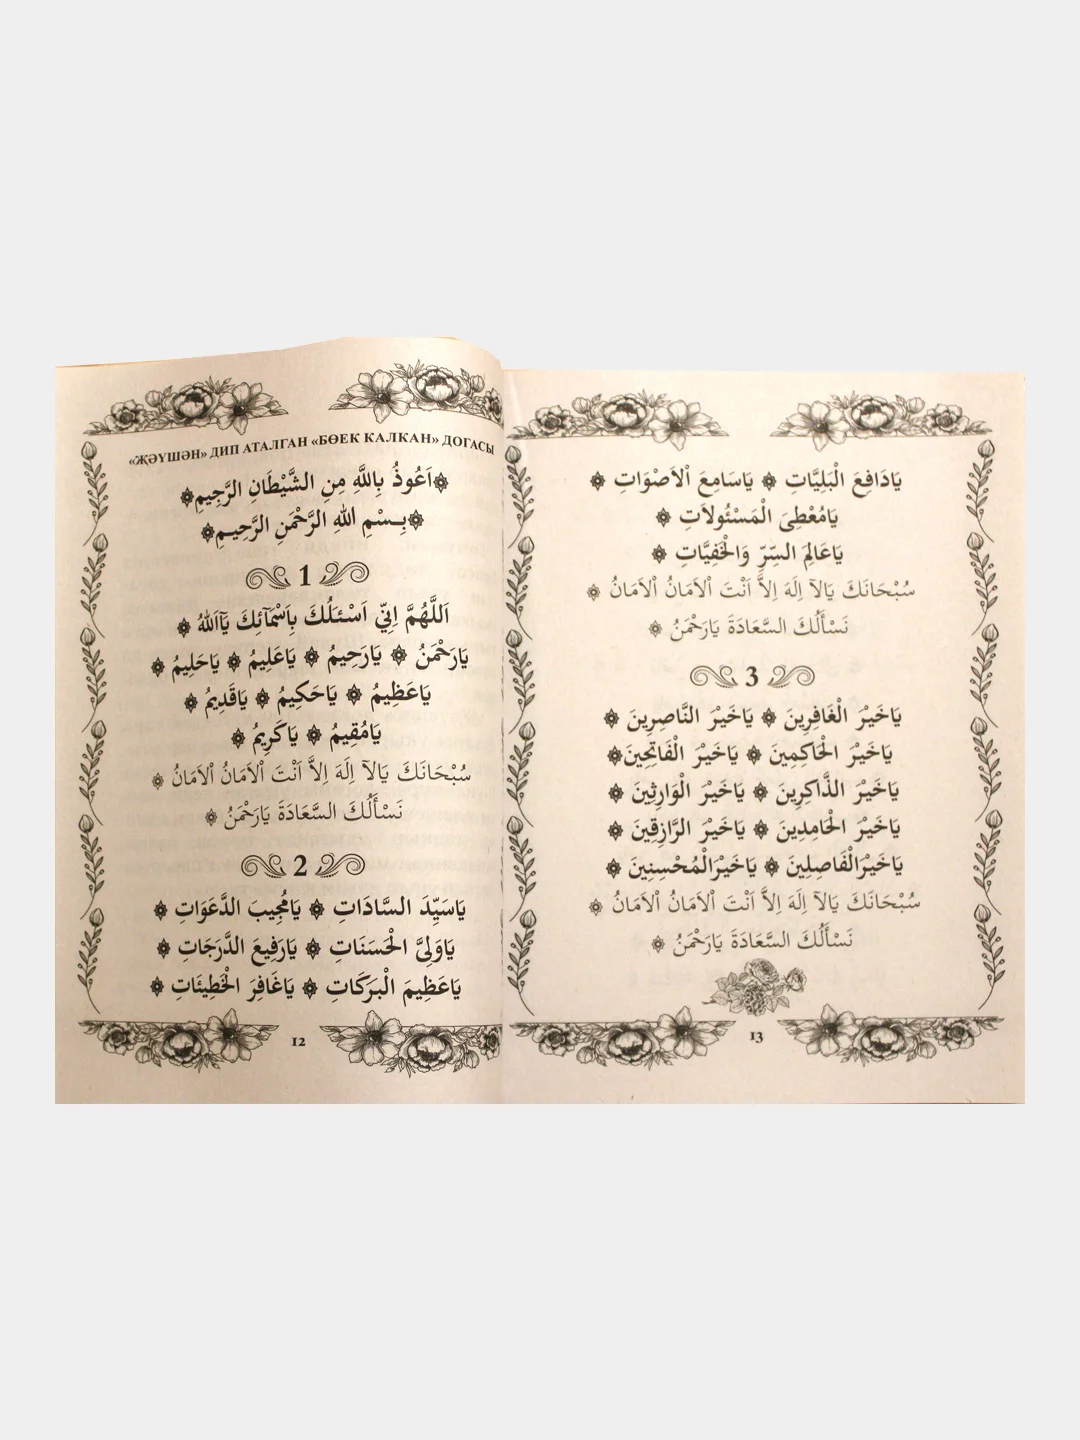 «ҖӘҮШӘН» ДИП АТАЛГАН «БӨЕК КАЛКАН» ДОГАСЫ
اَعُوذُ بِاللَّهِ مِنِ الشَّيْطَانِ الرَّجِيمِ
بِسْمِ اللهِ الرَّحْمَنِ الرَّحِيمِ
1
اَللَّهُمَّ اِنِّي اَسْئَلُكَ بِاَسْمَآئِكَ يَآاَللهُ
يَارَحْمَنُ ۞ يَارَحِيمُ ۞ يَاعَلِيمُ ۞ يَاحَلِيمُ ۞
يَاعَظِيمُ ۞ يَاحَكِيمُ ۞ يَاقَدِيمُ ۞
يَامُقِيمُ ۞ يَاكَرِيمُ ۞
سُبْحَانَكَ يَالآ اِلَهَ اِلاَّ اَنْتَ اْلاَمَانُ اْلاَمَانُ ۞
نَسْأَلُكَ السَّعَادَةَ يَارَحْمَنُ ۞
2
يَاسَيِّدَ السَّادَاتِ ۞ يَامُجِيبَ الدَّعَوَاتِ ۞
يَاوَلِىَّ الْحَسَنَاتِ ۞ يَارَفِيعَ الدَّرَجَاتِ ۞
يَاعَظِيمَ الْبَرَكَاتِ ۞ يَاغَافِرَ الْخَطِيئَاتِ ۞
12
يَادَافِعَ الْبَلِيَّاتِ ۞ يَاسَامِعَ اْلاَصْوَاتِ ۞
يَامُعْطِىَ الْمَسْئُولاَتِ ۞
يَاعَالِمَ السِّرِّ وَالْخَفِيَّاتِ ۞
سُبْحَانَكَ يَالآ اِلَهَ اِلاَّ اَنْتَ اْلاَمَانُ اْلاَمَانُ ۞
نَسْأَلُكَ السَّعَادَةَ يَارَحْمَنُ ۞
3
يَاخَيْرَ الْغَافِرِينَ ۞ يَاخَيْرَ النَّاصِرِينَ ۞
يَاخَيْرَ الْحَاكِمِينَ ۞ يَاخَيْرَ الْفَاتِحِينَ ۞
يَاخَيْرَ الذَّاكِرِينَ ۞ يَاخَيْرَ الْوَارِثِينَ ۞
يَاخَيْرَ الْحَامِدِينَ ۞ يَاخَيْرَ الرَّازِقِينَ ۞
يَاخَيْرَالْفَاصِلِينَ ۞ يَاخَيْرَالْمُحْسِنِينَ ۞
سُبْحَانَكَ يَالآ اِلَهَ اِلاَّ اَنْتَ اْلاَمَانُ اْلاَمَانُ ۞
نَسْأَلُكَ السَّعَادَةَ يَارَحْمَنُ ۞
13